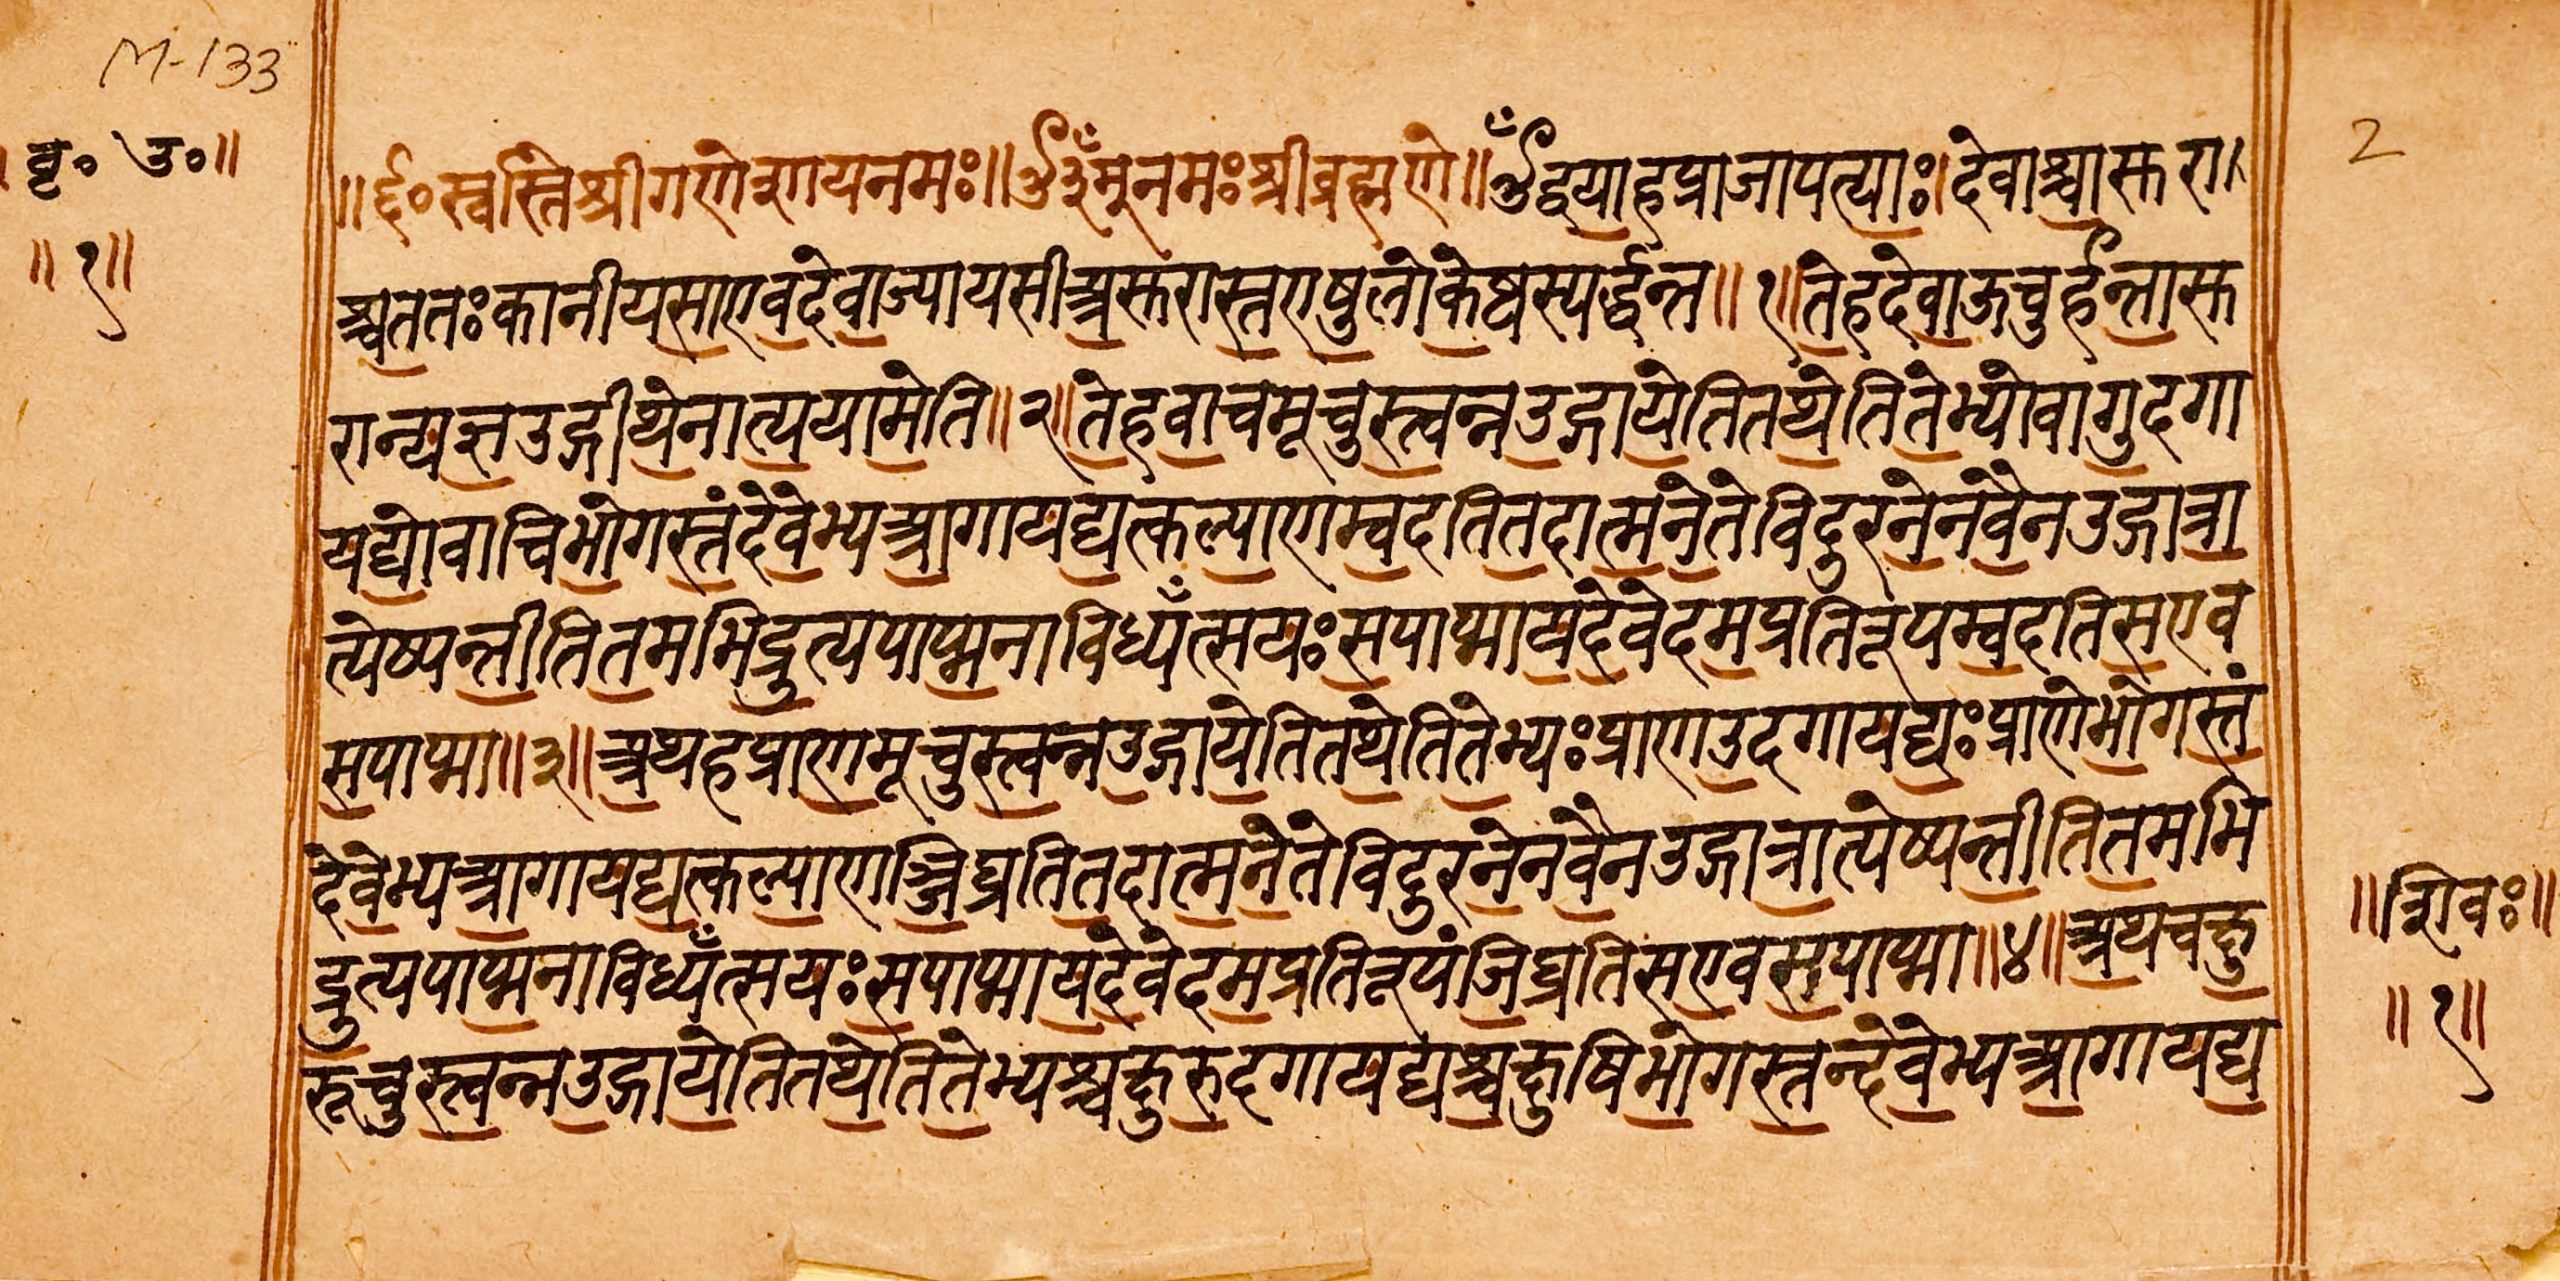 M-133
बृ॰ उ॰॥
॥१॥
2
॥ॐ॰स्वस्तिश्रीगणेशायनमः॥ॐँम्नमःश्रीब्रह्मणे॥ॐद्वयाहप्राजापत्याः।देवाश्चासुरा
श्चततःकानीयसाएवदेवाज्यायसीअसुरास्तएषुलोकेष्वस्पर्द्धन्त॥१॥तेहदेवाऊचुर्हन्तासु
रान्यज्ञउद्गीथेनात्ययामेति॥२॥तेहवाचमूचुस्त्वन्नउद्गायेतितथेतितेभ्योवागुदगा
यद्योवाचिभोगस्तंदेवेभ्यआगायद्यत्कल्याणम्वदतितदात्मनेतेविदुरनेनवैनउद्गात्रा
त्येष्यन्तीतितमभिद्रुत्यपाप्मनाविध्यँत्सयःसपाप्मायदेवेदमप्रतिरूपम्वदतिसएव
सपाप्मा॥३॥अथहप्राणमूचुस्त्वन्नउद्गायेतितथेतितेभ्यःप्राणउदगायद्यःप्राणेभोगस्तं
देवेभ्यआगायद्यत्कल्याणञ्जिघ्रतितदात्मनेतेविदुरनेनवैनउद्गात्रात्येष्यन्तीतितमभि
द्रुत्यपाप्मनाविध्यँत्सयःसपाप्मायदेवेदमप्रतिरूपंजिघ्रतिसएवसपाप्मा॥४॥अथचक्षु
रूचुस्त्वन्नउद्गायेतितथेतितेभ्यश्चक्षुरुदगायद्यश्चक्षुषिभोगस्तन्देवेभ्यआगायद्य
॥शिवः॥
॥१॥